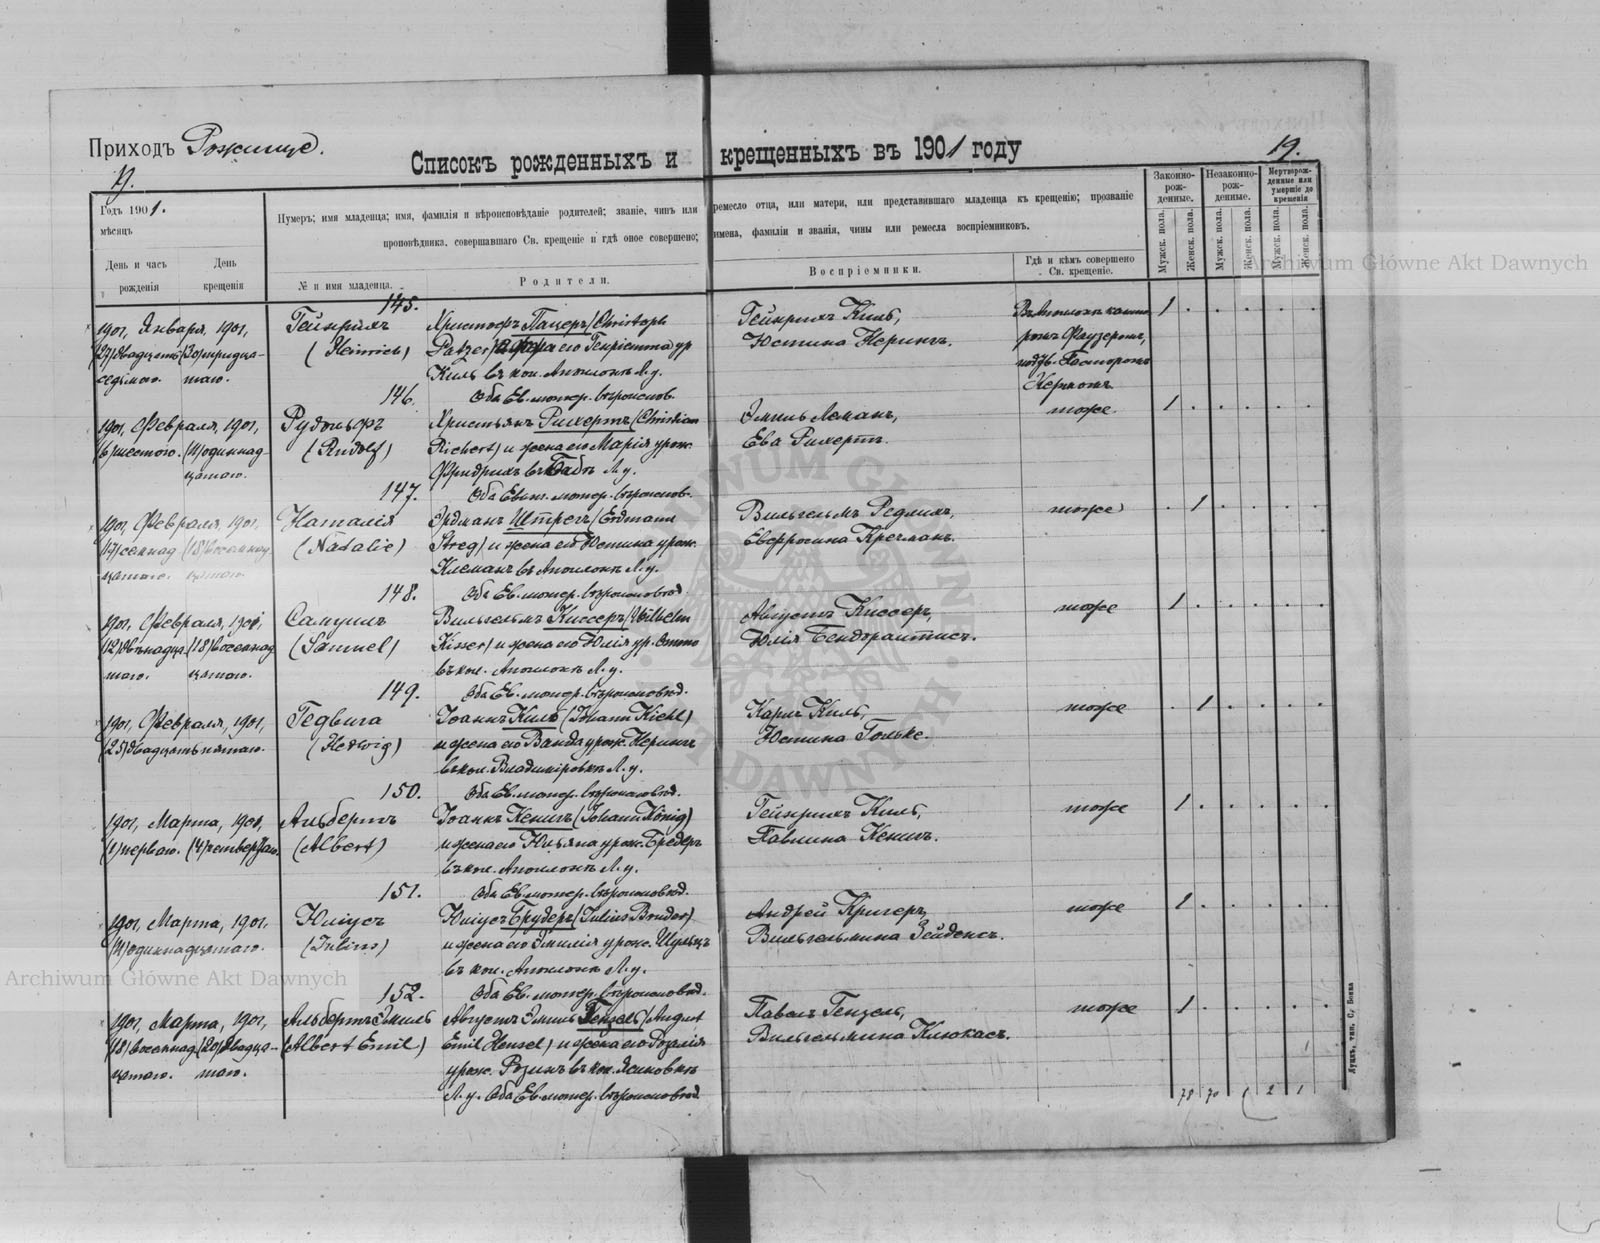 Приходъ Рожище.
Списокъ рожденныхъ и крещенныхъ въ 1901 году
19.
19.
Годъ 1901.
мѣсяцъ
День и часъ рожденія
День крещенія
Нумеръ; имя младенца; имя, фамилія и вѣроисповѣданіе родителей; званіе, чинъ или ремесло отца, или матери, или представившаго младенца къ крещенію; прозваніе
проповѣдника, совершавшаго Св. крещеніе и гдѣ оное совершено; имена, фамиліи и званія, чины или ремесла воспріемниковъ.
№ и имя младенца.
Родители.
Воспріемники.
Гдѣ и кѣмъ совершено Св. крещеніе.
Законно-рож-денные.
Незаконно-рож-денные.
Мертворож-денные или умершіе до крещенія
Мужск. пола.
Женск. пола.
Мужск. пола.
Женск. пола.
Мужск. пола.
Женск. пола.
145.
1901, Января, 1901,
(27) двадцать (30) тридца-
седьмого. таго.
Гейнрихъ
(Heinrich)
Христофъ Пацеръ (Christoph
Patzer) и жена его Генріетта ур.
Киль въ кол. Аполонкѣ Л. у.
Оба Ев. лютер. вѣроиспов.
Гейнрихъ Киль,
Юстина Нерингъ.
Въ Аполонкѣ канто-
ромъ Фаузеромъ,
подтв. Пасторомъ
Керномъ.
1
146.
1901, Февраля, 1901,
(6) шестого. (11) одиннад-
цатого.
Рудольфъ
(Rudolf)
Христьянъ Рихертъ (Christian
Richert) и жена его Марія урож.
Фридрихъ въ Бабѣ Л. у.
Оба Еванг. лютер. вѣроиспов.
Эмиль Леманъ,
Ева Рихертъ.
тоже.
1
147.
1901, Февраля, 1901,
(17) семнад (18) восемнад
цатого. цатого.
Наталія
(Natalie)
Эрдманъ Штрегъ (Erdmann
Streg) и жена его Юстина урож.
Клеманъ въ Аполонкѣ Л. у.
Оба Ев. лютер. вѣроисповѣд.
Вильгельмъ Редлихъ,
Евфросина Кречманъ.
тоже
1
148.
1901, Февраля, 1901,
(12) двѣнадца (18) восемнад
таго. цатаго.
Самуилъ
(Samuel)
Вильгельмъ Киссеръ (Wilhelm
Kisser) и жена его Юлія ур. Отто
въ кол. Аполонкѣ Л. у.
Оба Ев. лютер. вѣроисповѣд.
Августъ Киссеръ,
Юлія
тоже
1
149.
1901, Февраля, 1901,
(25) двадцать пятаго.
Гедвига
(Hedwig)
Іоаннъ Киль (Johann Kiehl)
и жена его Ванда урож. Нерингъ
въ кол. Владиміровкѣ Л. у.
Оба Ев. лютер. вѣроисповѣд.
Карлъ Киль,
Юстина Гольке.
тоже
1
150.
1901, Марта, 1901,
(1) перваго. (4) четвертаго.
Альбертъ
(Albert)
Іоаннъ Кенигъ (Johann König)
и жена его Юльяна урож. Бредеръ
въ кол. Аполонкѣ Л. у.
Оба Ев. лютер. вѣроисповѣд.
Гейнрихъ Киль,
Павлина Кенигъ.
тоже
1
151.
1901, Марта, 1901,
(11) одиннадцатаго.
Юліусъ
(Julius)
Юліусъ Брудеръ (Julius Bruder)
и жена его Эмилія урож. Шульцъ
въ кол. Аполонкѣ Л. у.
Оба Ев. лютер. вѣроисповѣд.
Андрей Кригеръ,
Вильгельмина Зейденсъ.
тоже
1
152.
1901, Марта, 1901,
(18) восемнад (20) двадца-
цатаго. таго.
Альбертъ Эмиль
(Albert Emil)
Августъ Эмиль Гензель (August
Emil Hensel) и жена его Розалія
урож. Розинъ въ кол. Ясиновкѣ
Л. у. Оба Ев. лютер. вѣроисповѣд.
Павелъ Гензель,
Вильгельмина Клюкасъ.
тоже
1
78 70 1 2 1
Луцкъ, тип. С. Бонка
Archiwum Główne Akt Dawnych
Archiwum Główne Akt Dawnych